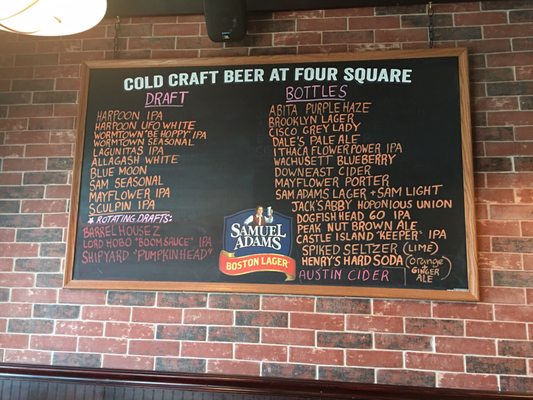 COLD CRAFT BEER AT FOUR SQUARE
DRAFT
HARPOON IPA
HARPOON UFO WHITE
WORMTOWN "BE HOPPY" IPA
WORMTOWN SEASONAL
LAGUNITAS IPA
ALLAGASH WHITE
BLUE MOON
SAM SEASONAL
MAYFLOWER IPA
SCULPIN IPA
ROTATING DRAFTS:
BARREL HOUSE Z
LORD HOBO "BOOM SAUCE" IPA
SHIPYARD "PUMPKINHEAD"
BOTTLES
ABITA PURPLE HAZE
BROOKLYN LAGER
CISCO GREY LADY
DALE'S PALE ALE
ITHACA FLOWER POWER IPA
WACHUSETT BLUEBERRY
DOWNEAST CIDER
MAYFLOWER PORTER
SAM ADAMS LAGER + SAM LIGHT
JACK'S ABBY HOPONIOUS UNION
DOGFISH HEAD 60 IPA
PEAK NUT BROWN ALE
CASTLE ISLAND "KEEPER" IPA
SPIKED SELTZER (LIME)
HENRY'S HARD SODA (orange + GINGER ALE)
AUSTIN CIDER
SAMUEL
ADAMS
BOSTON LAGER